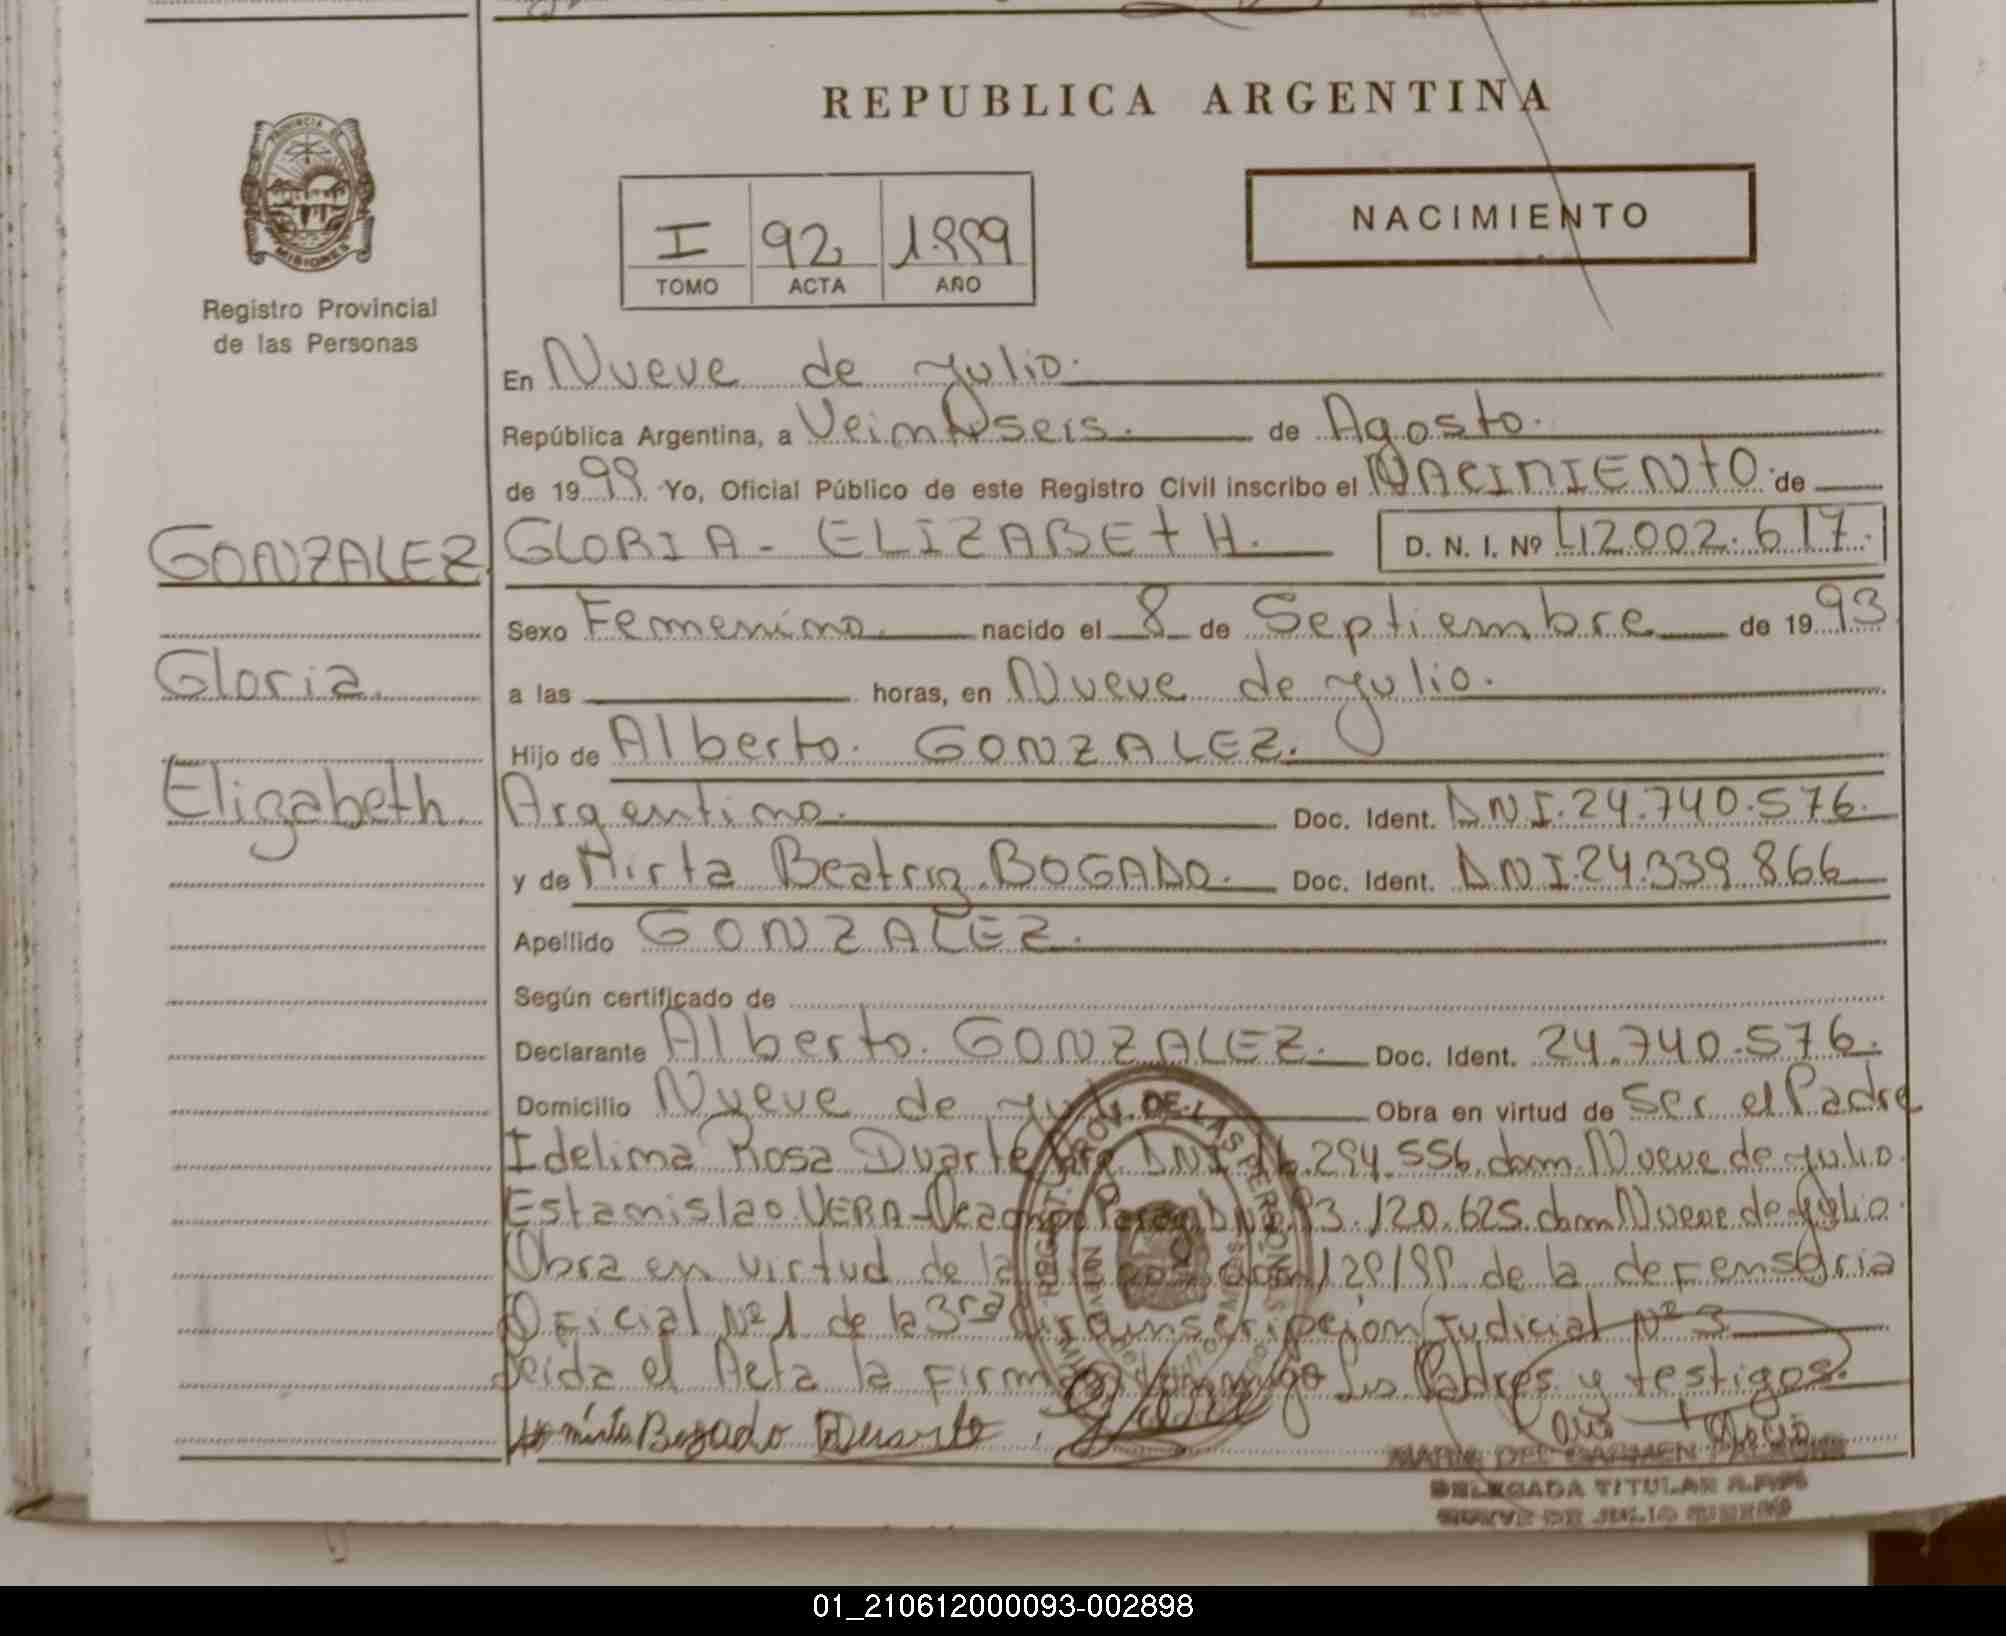 REPUBLICA ARGENTINA
PROVINCIA DE
MISIONES
Registro Provincial
de las Personas
I 92 1.999
TOMO ACTA AÑO
NACIMIENTO
En Nueve de Julio.
República Argentina, a Veintiseis. de Agosto.
de 1999. Yo, Oficial Público de este Registro Civil inscribo el NACIMIENTO. de
GONZALEZ
GLORIA - ELIZABETH. D. N. I. Nº 42.002.617.
Sexo Femenino. nacido el 8 de Septiembre de 1993
Gloria
a las horas, en Nueve de Julio.
Hijo de Alberto. GONZALEZ.
Elizabeth.
Argentino. Doc. Ident. DNI.24.740.576.
y de Mirta Beatriz BOGADO. Doc. Ident. DNI.24.339.866
Apellido GONZALEZ.
Según certificado de
Declarante Alberto. GONZALEZ. Doc. Ident. 24.740.576.
Domicilio Nueve de Obra en virtud de Ser el Padre
Idelima Rosa Duarte Arg. DNI 294.556. dom. Nueve de Julio.
Estanislao VERA 120.625. dom Nueve de Julio.
Obra en virtud de la de la defensoria
Oficial Nº1 de la 3ra Circunscripcion Judicial Nº 3
Leida el Acta la firman conmigo los Padres y testigos.
Mirta Bogado Duarte
MARIA DEL CARMEN
DELEGADA TITULAR R.P.P.
NUEVE DE JULIO
01_210612000093-002898